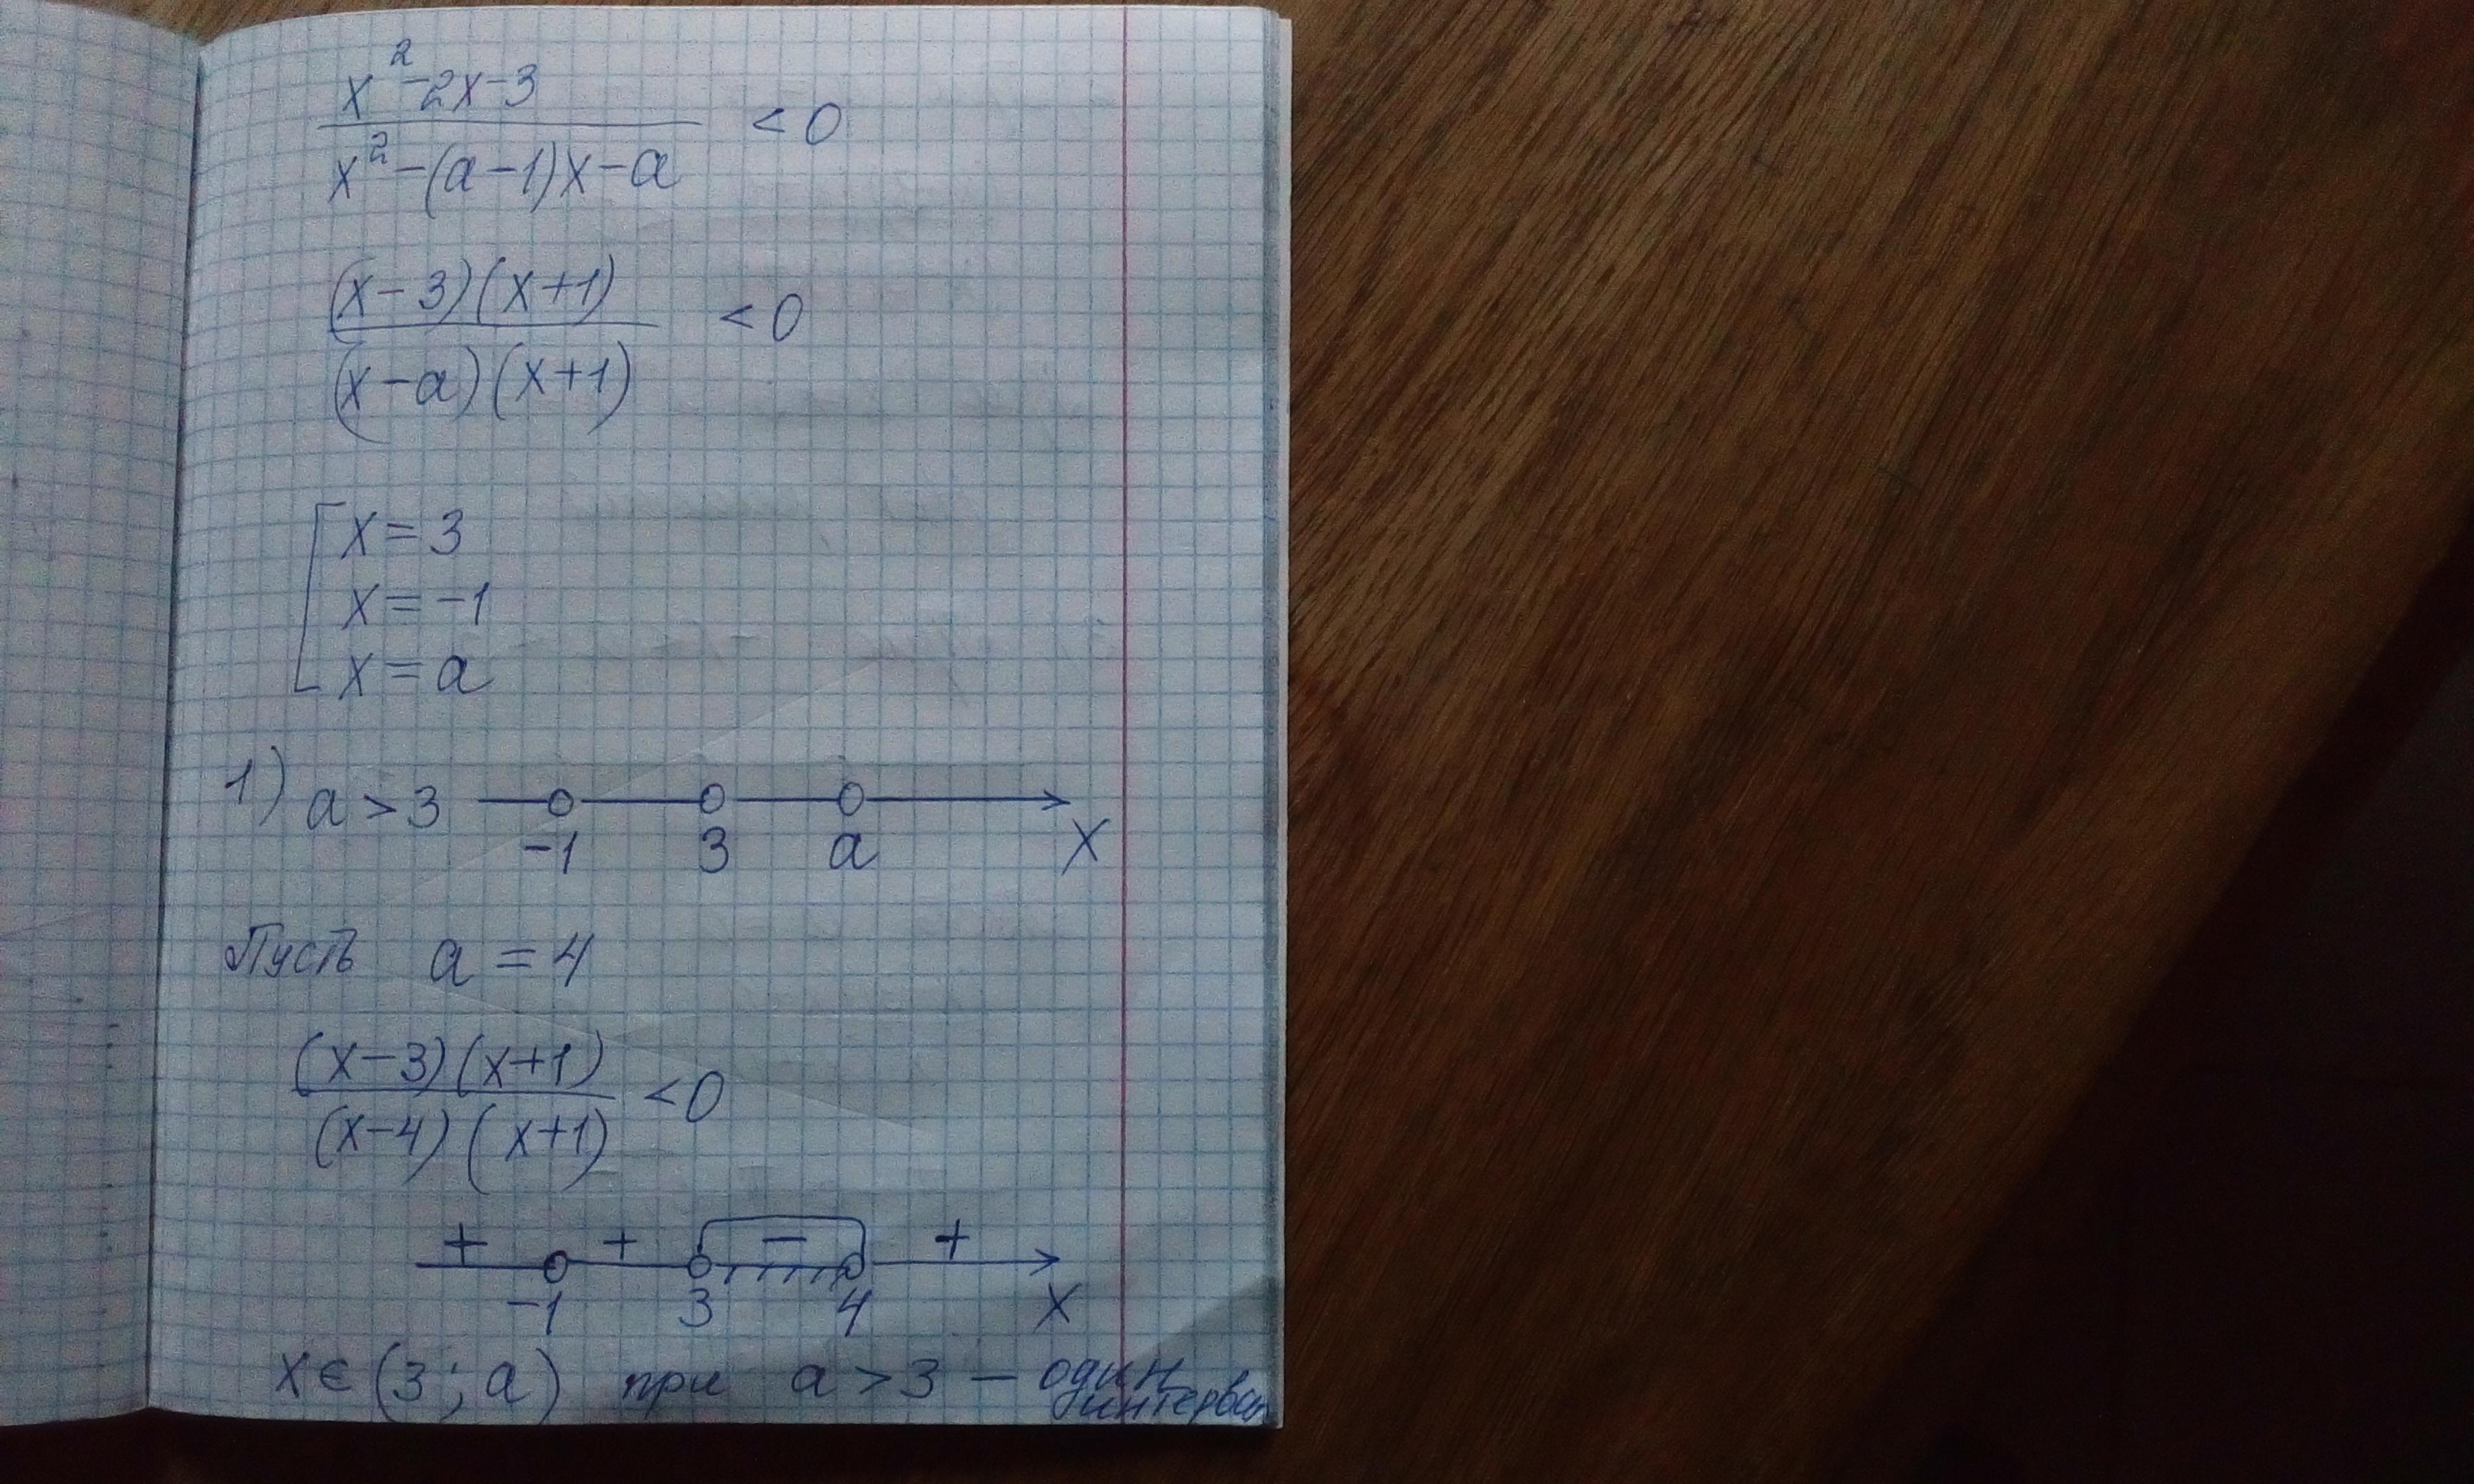 x²-2x-3
x²-(a-1)x-a
<0
(x-3)(x+1)
(x-a)(x+1)
<0
x=3
x=-1
x=a
1) a>3
-1 3 a x
Пусть a=4
(x-3)(x+1)
(x-4)(x+1)
<0
+ + - +
-1 3 4 x
x∈(3;a) при a>3 - один
интервал